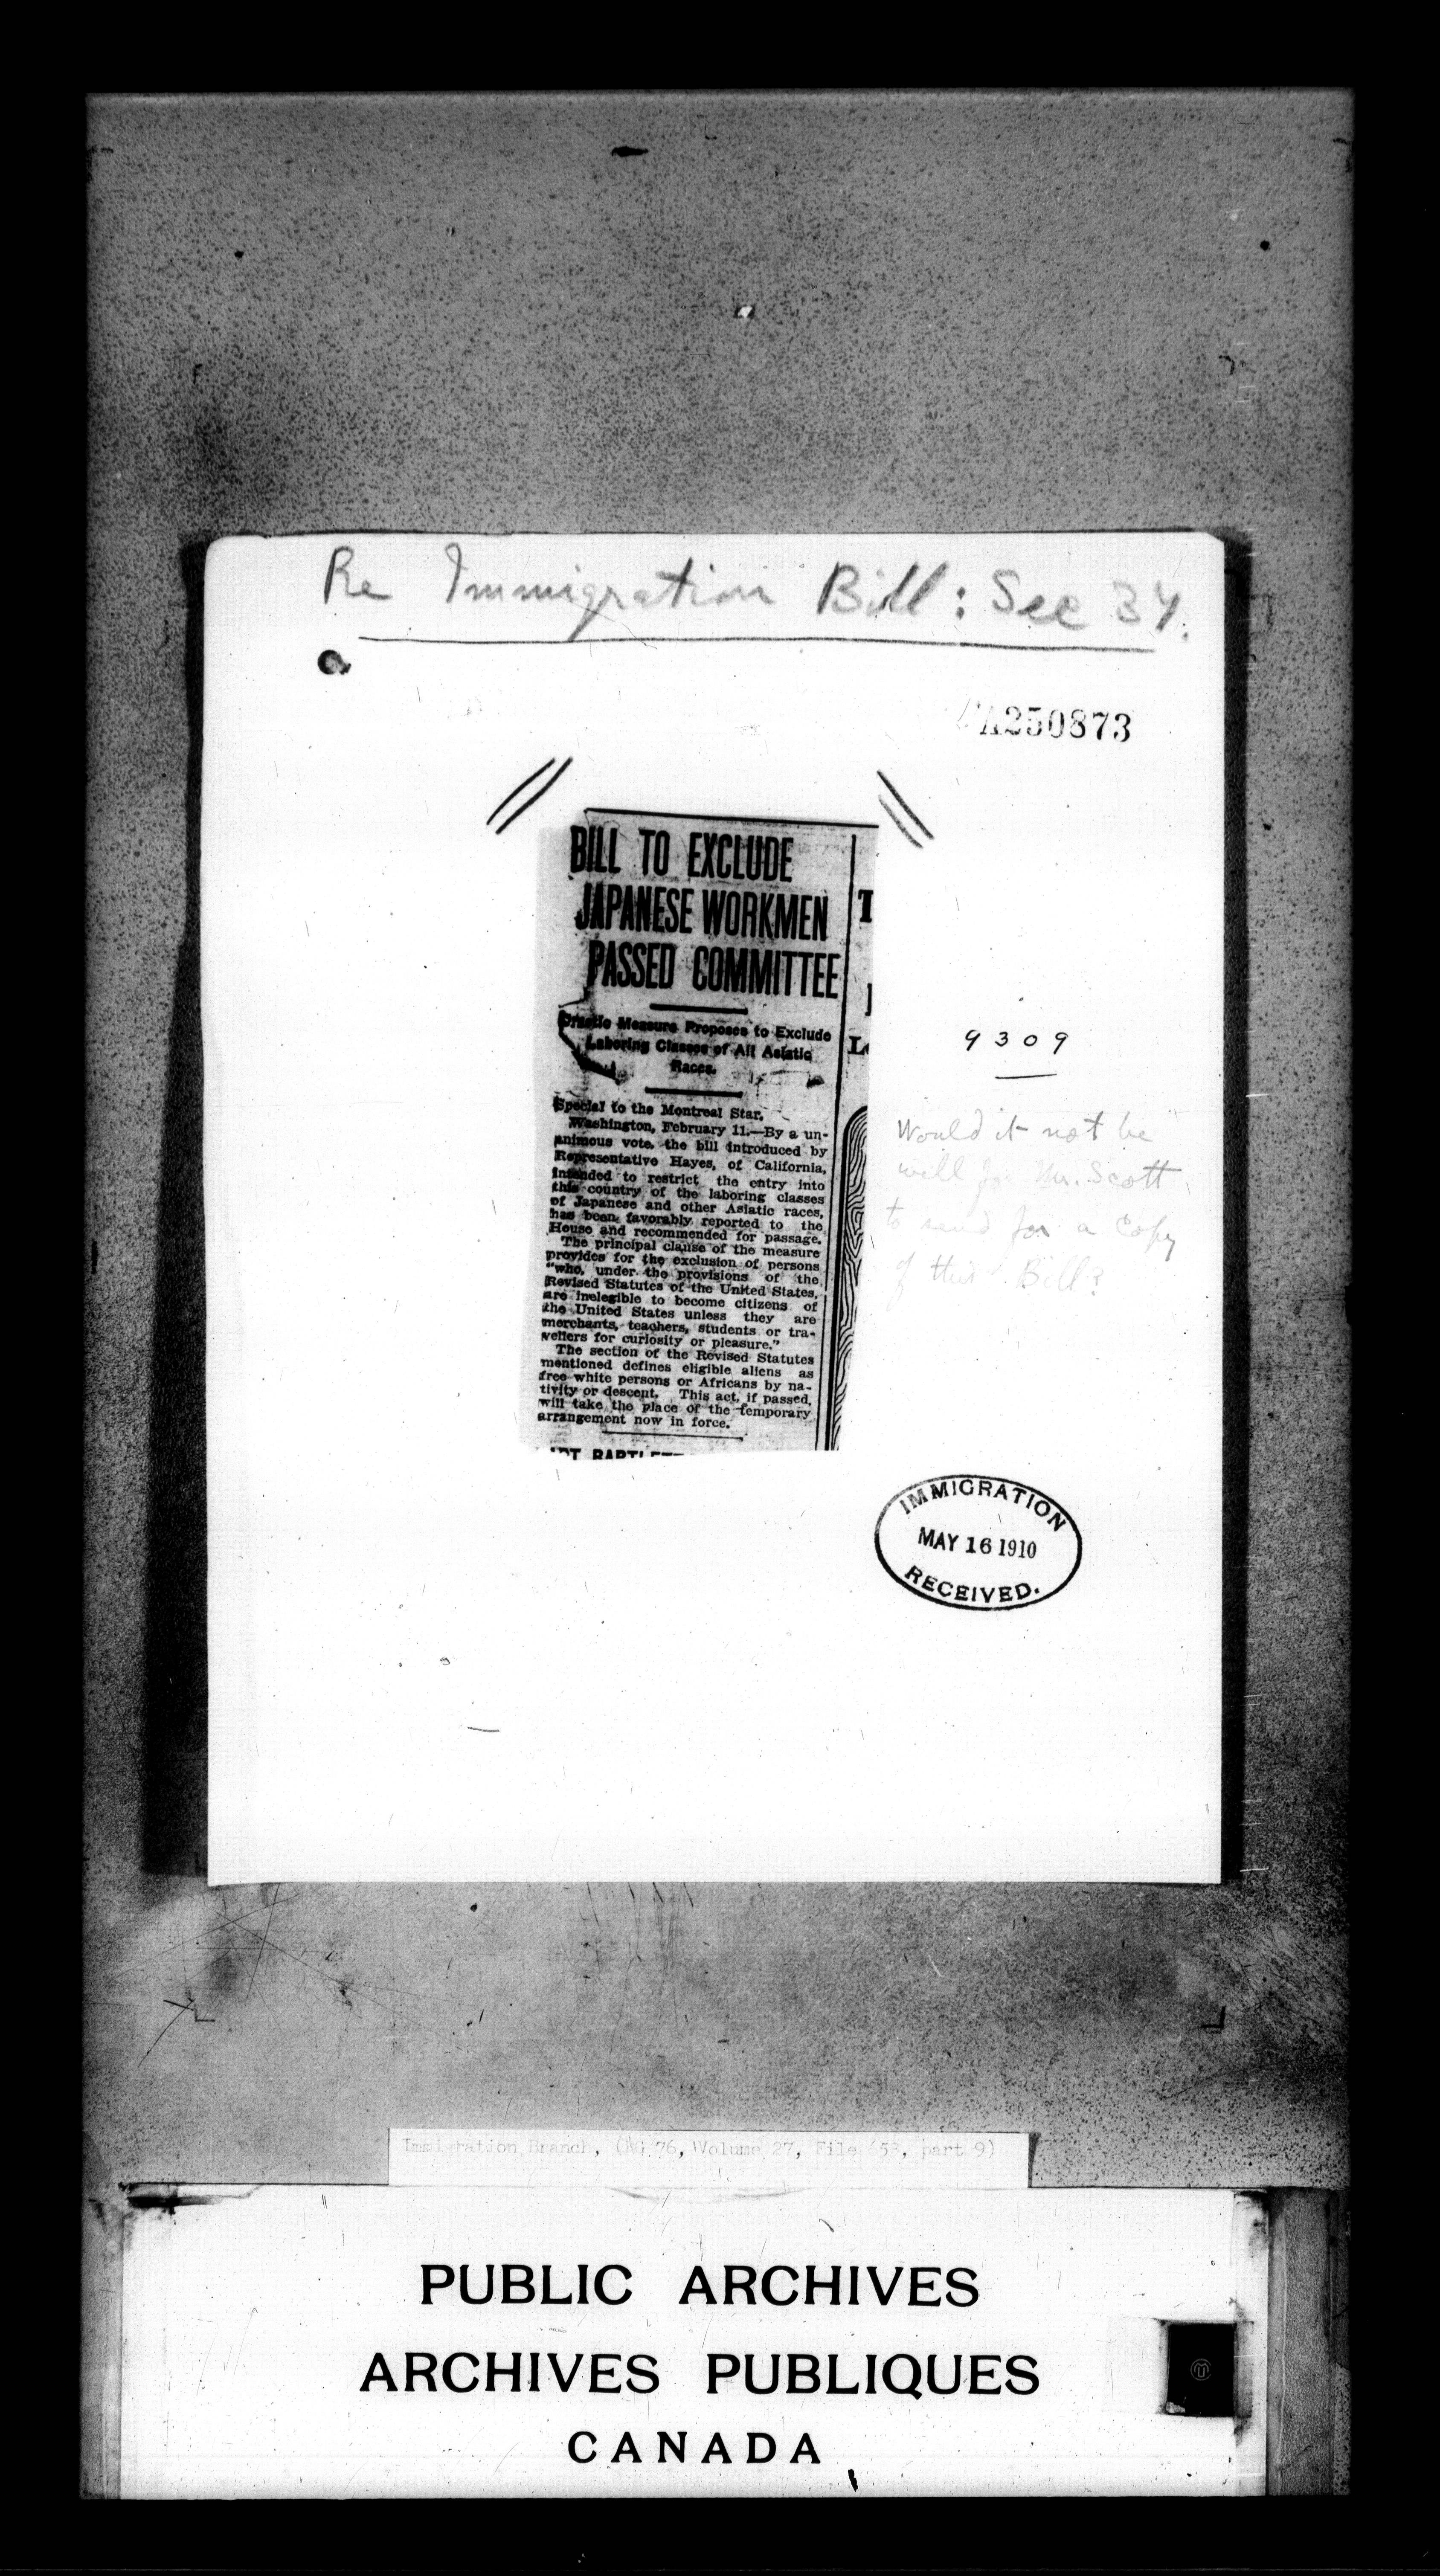 Re Immigration Bill: See 37.
A250873
BILL TO EXCLUDE
JAPANESE WORKMEN
PASSED COMMITTEE
Drastic Measure Proposes to Exclude
Laboring Classes of All Asiatic
Races.
Special to the Montreal Star.
Washington, February 11.—By a un-
animous vote, the bill introduced by
Representative Hayes, of California,
intended to restrict the entry into
this country of the laboring classes
of Japanese and other Asiatic races,
has been favorably reported to the
House and recommended for passage.
The principal clause of the measure
provides for the exclusion of persons
"who, under the provisions of the
Revised Statutes of the United States,
are inelegible to become citizens of
the United States unless they are
merchants, teachers, students or tra-
vellers for curiosity or pleasure."
The section of the Revised Statutes
mentioned defines eligible aliens as
free white persons or Africans by na-
tivity or descent. This act, if passed,
will take the place of the temporary
arrangement now in force.
T
L
9309
Would it not be
well for Mr. Scott
to send for a Copy
of this Bill?
IMMIGRATION
MAY 16 1910
RECEIVED.
Immigration Branch, (RG 76, Volume 27, File 653, part 9)
PUBLIC ARCHIVES
ARCHIVES PUBLIQUES
CANADA